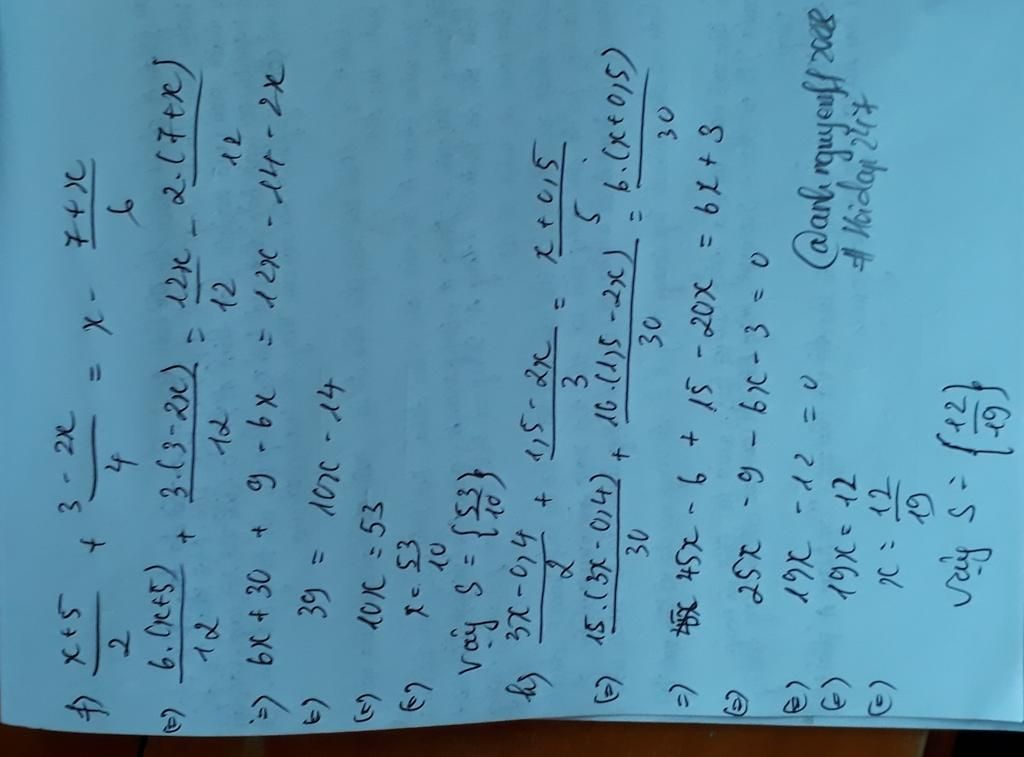 f) \frac{x+5}{2} + \frac{3-2x}{4} = x - \frac{7+x}{6}
(=) \frac{6.(x+5)}{12} + \frac{3.(3-2x)}{12} = \frac{12x}{12} - \frac{2.(7+x)}{12}
=) 6x + 30 + 9 - 6x = 12x - 14 - 2x
(=) 39 = 10x - 14
(=) 10x = 53
(=) x = \frac{53}{10}
vậy S = {\frac{53}{10}}
h) \frac{3x-0,4}{2} + \frac{1,5-2x}{3} = \frac{x+0,5}{5}
(=) \frac{15.(3x-0,4)}{30} + \frac{10.(1,5-2x)}{30} = \frac{6.(x+0,5)}{30}
=) 45x - 6 + 15 - 20x = 6x + 3
(=) 25x - 9 - 6x - 3 = 0
(=) 19x - 12 = 0
(=) 19x = 12
(=) x = \frac{12}{19}
vậy S = {\frac{12}{19}}
@anhnguyenff2008
# Hoidap247